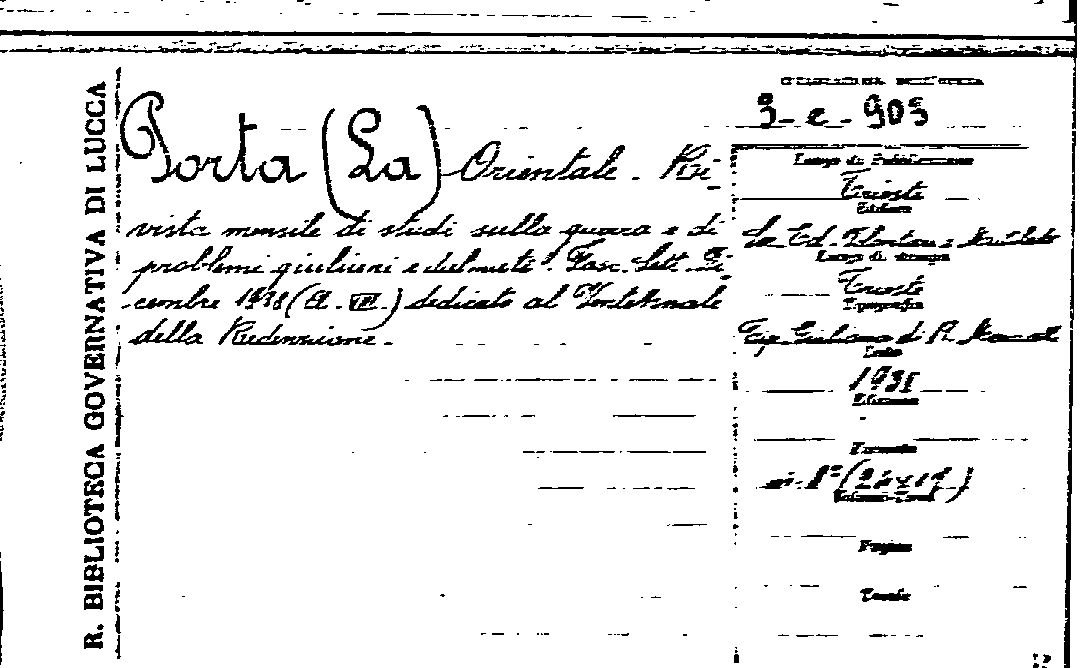 R. BIBLIOTECA GOVERNATIVA DI LUCCA
Porta (La) Orientale. Ri-
vista mensile di studi sulla guerra e di
problemi giuliani e dalmati. Fasc. Sett. Di-
cembre 1938 (A. VIII.) dedicato al
della Redenzione.
3-e-903
Luogo di Pubblicazione
Trieste
Editore
Ed.
Luogo di stampa
Trieste
Tipografia
Tip. Giuliana di R.
Data
193
Edizione
Formato
in-8° (24x17)
Volumi-Tomi
Pagine
Tavole